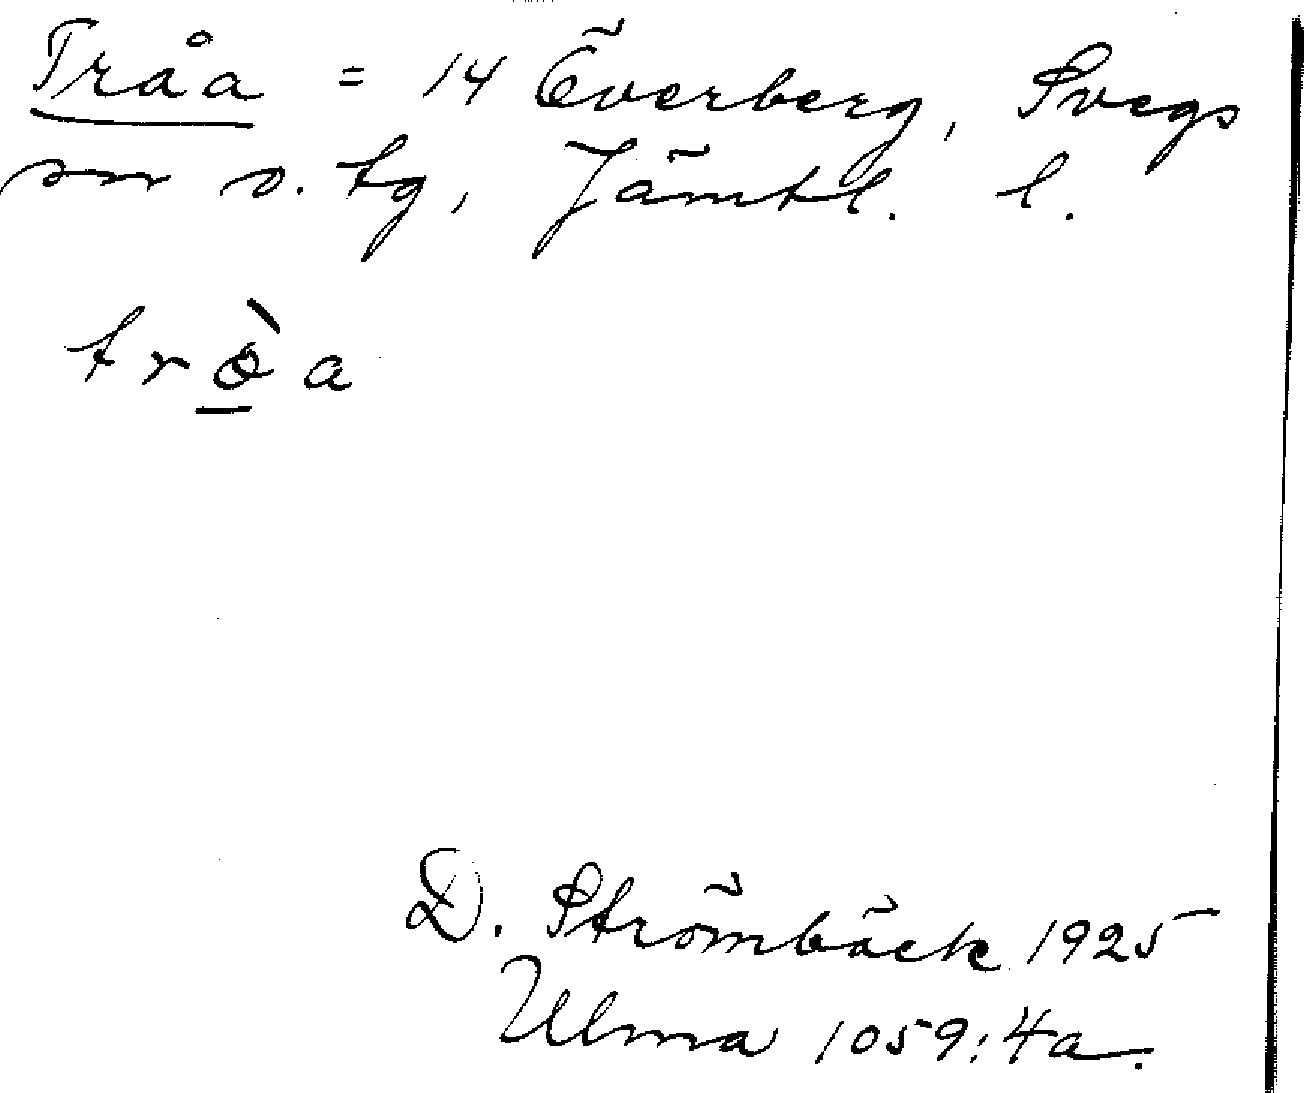 Tråa = 14 Överberg, Svegs
sn o. tg, Jämtl. l.
trò̲a
D. Strömbäck 1925
Ulma 1059:4a.